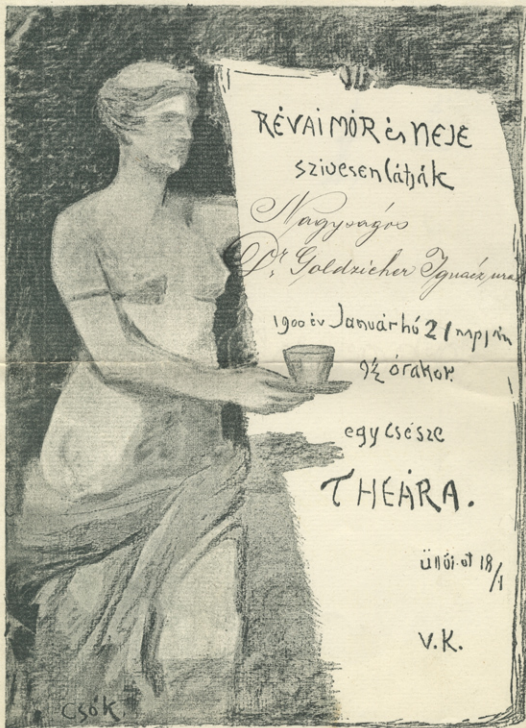 RÉVAI MÓR és NEJE
szivesen látják
Nagyságos
Dr Goldzieher Ignácz urat
1900 év Január hó 21 napján
9½ órakor
egy csésze
THEÁRA.
üllői-út 18/1
V.K.
Csók